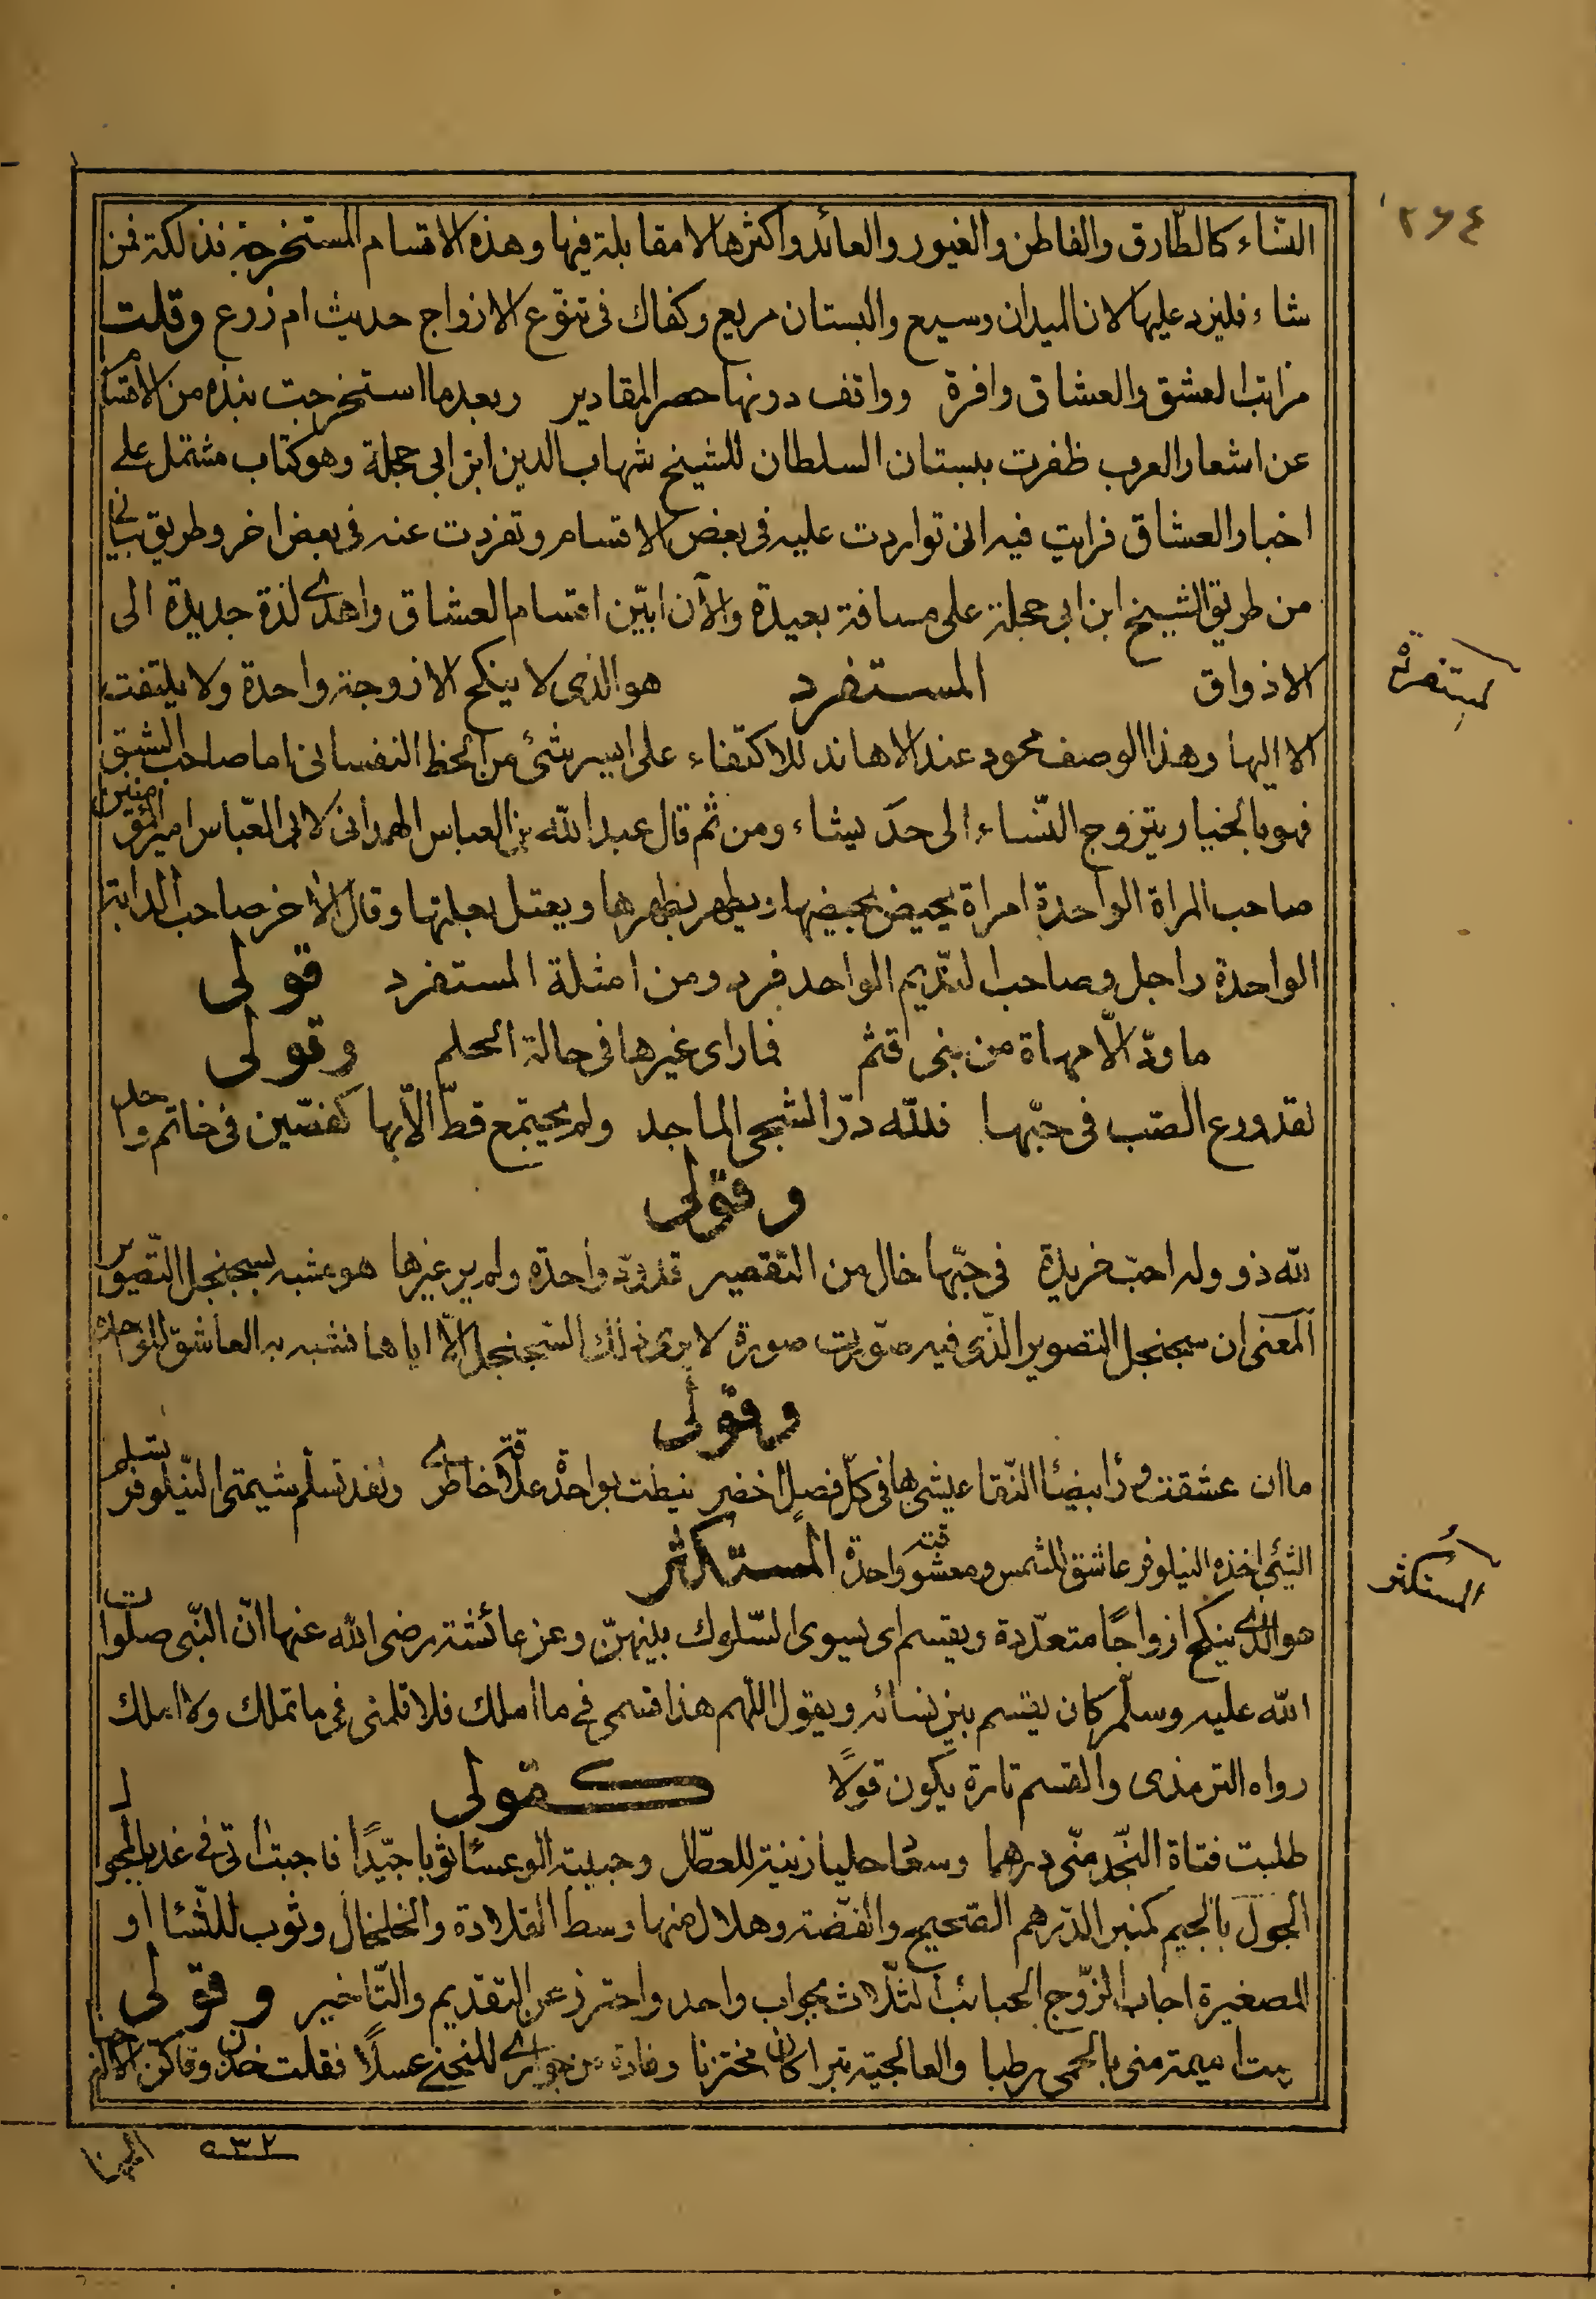 ٢٦٤
النساء كالطارق والفاطن والغيور والعائد واكثرها لا مقابلة فيها وهذه الاقسام المستخرجة نذلكة فمن
شاء فليزد عليها لان الميدان وسيع والبستان مريع وكفاك فى تنوّع الازواج حديث ام زرع وقلت
مراتب العشق والعشاق وافرة وواقف دونها حصر المقادير وبعدما استخرجت نبذه من الاقسام
عن اشعار العرب ظفرت ببستان السلطان للشيخ شهاب الدين ابن ابى حجلة وهو كتاب مشتمل على
اخبار العشاق فرايت فيه انى تواردت عليه فى بعض الاقسام وتفردت عنه فى بعض اخر وطريق بيانى
من طريق الشيخ ابن ابى حجلة على مسافة بعيدة والآن ابيّن اقسام العشاق واهدى لذة جديدة الى
الاذواق المستفرد هو الذى لا ينكح الا زوجة واحدة ولا يلتفت
المستفرد
الا اليها وهذا الوصف محمود عند الاهاند للاكتفاء على ايسر شئ من الحظ النفسانى اما صاحب الشبق
فهو بالخيار يتزوج النّساء الى حدّ يشاء ومن ثم قال عبد الله بن العباس الهمدانى لابى العبّاس امير المؤمنين
صاحب المراة الواحدة امراة يحيض بحيضها ويطهر بطهرها ويعتل بعلتها وقال الآخر صاحب الدابة
الواحدة راجل وصاحب النديم الواحد فرد ومن امثلة المستفرد قولى
ما ودّ الّا مهاة من بنى قثم فما راى غيرها فى حالة الحلم وقولى
لقد ورع الصّب فى حبّها فللّه درّ الشجى الماجد ولم يجتمع قطّ الّا بها كفصّين فى خاتم واحد
وقولى
للّه ذو وله احبّ خريدة فى حبّها خال من التّقصير قد ودّ واحدة ولم ير غيرها هو مشبه بسجنجل التّصوير
المعنى ان سجنجل التصوير الذّى فيه صوّرت صورة لا يرى ذلك السّجنجل الّا اياها فشبه به العاشق للواحدة
وقولى
ما ان عشقت بيضا النّقا عيشى بها فى كلّ فصل اخضر نيطت بواحدة علاقة خاطرى ولقد تسلّم شيمتى النّيلوفر
الشئ اخذه النيلوفر عاشق الشمس ومعشوقته واحدة المستكثر
المستكثر
هو الذى ينكح ازواجًا متعدّدة ويقسم اى يسوى السّلوك بينهنّ وعن عائشة رضى الله عنها انّ النّبى صلوات
الله عليه وسلّم كان يقسم بين نسائه ويقول اللّهم هذا قسمى فى ما املك فلا تلمنى فى ما تملك ولا املك
رواه الترمذى والقسم تارة يكون قولًا كقولى
طلبت فتاة النّجد منّى درهما وسعا حليا زينة للعطّل وحبيبة الوعسا ثوبا جيّدًا فاجبت آتى فى غد بالمجول
المجول بالجيم كمنبر الدّرهم الصّحيح والفضّة وهلال منها وسط القلادة والخلخال وثوب للنّسا او
الصغيرة اجاب الزّوج الحبائب الثّلاث بجواب واحد واحترز عن التقديم والتّاخير وقولى
اميمة منى بالحمى رطبا والعالجية تبرا كان مختزنا وغادة من جوارى للنحى عسلًا فقلت
٥٣٢